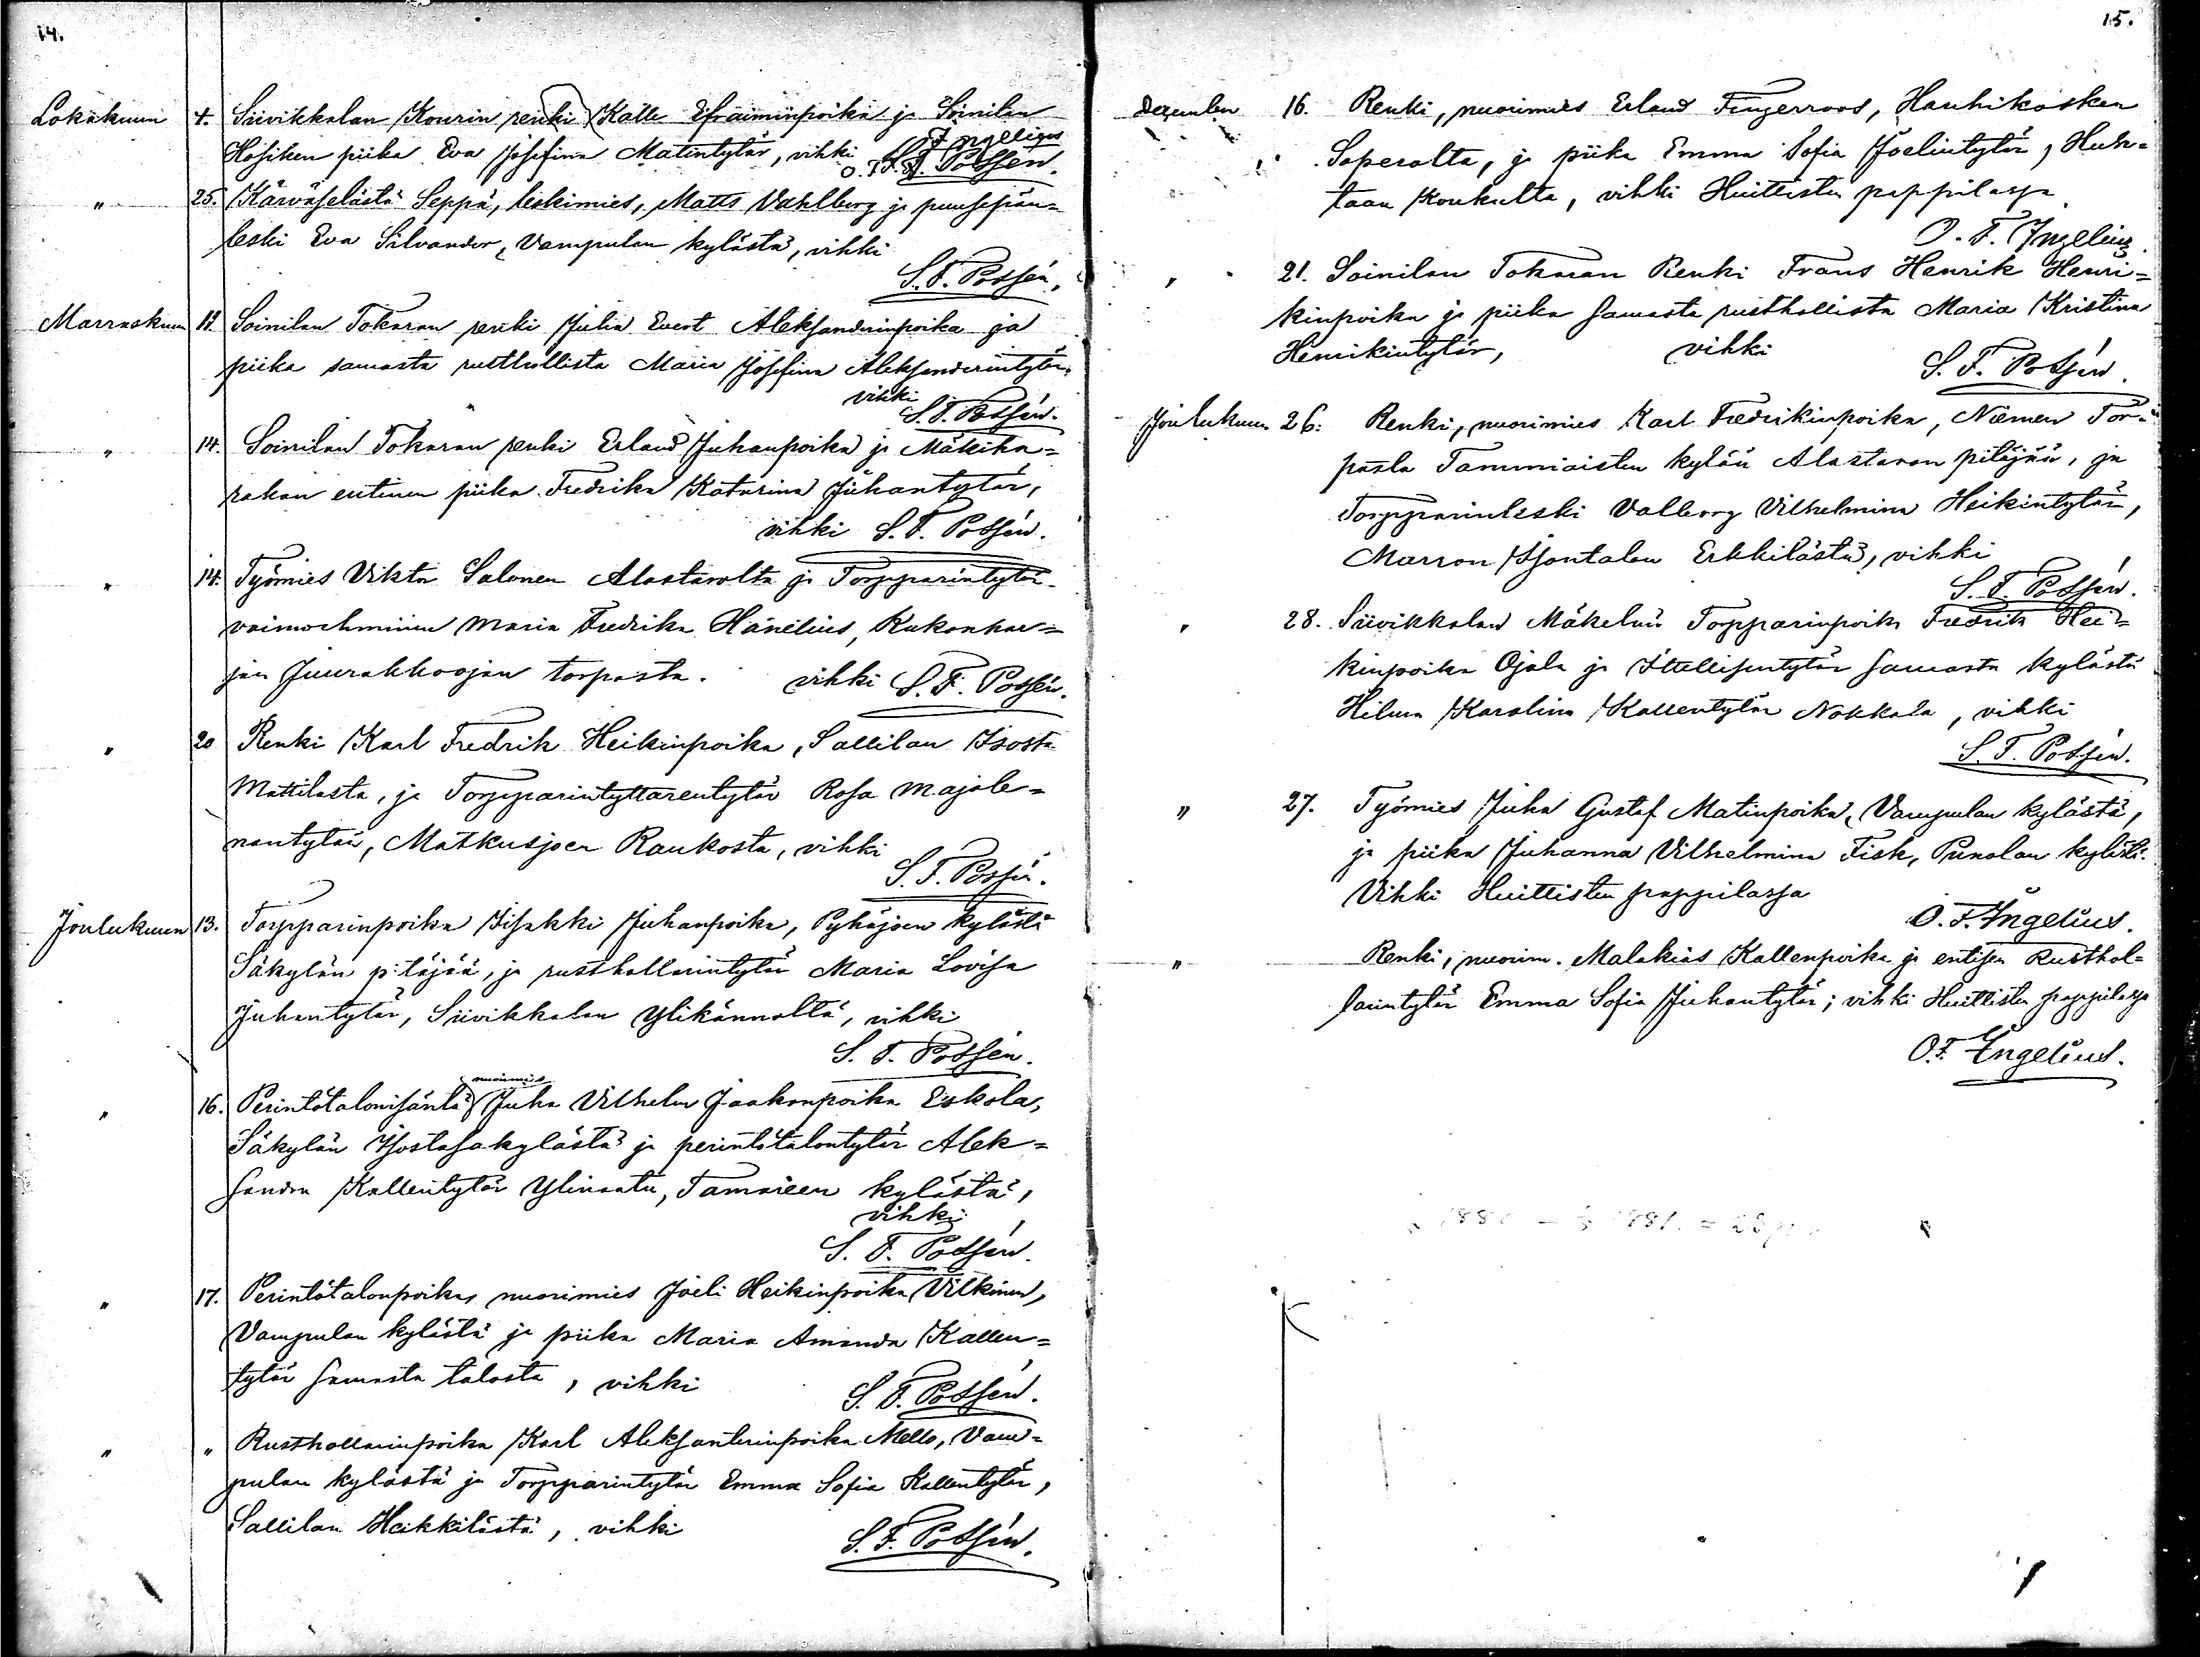 14.
Lokakuun 4. Siivikkalan Kourin renki Kalle Efraiminpoika ja Soinilan
Hasiken piika Eva Josefina Matintytär, vihki O. F. Ingelius
S. F. Possén.
" 25. Kärväselästä Seppä, leskimies, Matts Vahlberg ja puusepän=
leski Eva Silvander, Vampulan kylästä, vihki
S. F. Possén.
Marraskuun 11. Soinilan Tokaran renki Julia Evert Aleksanderinpoika ja
piika samasta rusthollista Maria Josefina Aleksanderintytär,
vihki
S. F. Possén.
" 14. Soinilan Tokaran renki Erland Juhanpoika ja Mäkiha=
rakan entinen piika Fredrika Katarina Juhantytär,
vihki S. F. Possén.
" 14. Työmies Viktor Salonen Alastarolta ja Torpparintytär
vaimoihminen Maria Fredrika Hanelius, Kukonhar=
jan Juurakkoojan torpasta. vihki S. F. Possén.
" 20 Renki Karl Fredrik Heikinpoika, Sallilan Isosta
Mattilasta, ja Torpparintyttarentytär Rosa Majale=
nantytär, Matkusjoen Raukosta, vihki
S. F. Possén.
Joulukuun 13. Torpparinpoika Iisakki Juhanpoika, Pyhäjoen kylästä
Säkylän pitäjää, ja rusthollarintytär Maria Lovisa
Juhantytär, Siivikkalan Ylikännoltä, vihki
S. F. Possén.
nuorimies
" 16. Perintötalonisäntä Juha Vilhelm Jaakonpoika Eskola,
Säkylän Isostasakylästä ja perintötalontytär Alek=
sandra Kallentytär Ylinaatu, Tamaren kylästä,
vihki
S. F. Possén.
" 17. Perintötalonpoika, nuorimies Joeli Heikinpoika Vilkinen,
Vampulan kylästä ja piika Maria Amanda Kallen=
tytär samasta talosta, vihki
S. F. Possén.
" " Rusthollarinpoika Karl Aleksanterinpoika Mello, Vam=
pulan kylästä ja Torpparintytär Emma Sofia Kallentytär,
Sallilan Heikkilästä, vihki
S. F. Possén.
15.
Dezember 16. Renki, nuorimies Erland Fingerroos, Hauhikosken
Saperalta, ja piika Emma Sofia Joelintytär, Huh=
taan Koukulta, vihki Huittisten pappilassa
O. F. Ingelius.
" 21. Soinilan Tokaran Renki Frans Henrik Henri=
kinpoika ja piika samasta rusthollista Maria Kristina
Henrikintytär, vihki
S. F. Possén.
Joulukuun 26. Renki, nuorimies Karl Fredrikinpoika, Niemen Tor=
pasta Tammiaisten kylän Alastaron pitäjää, ja
Torpparinleski Valborg Vilhelmina Heikintytär,
Marron Isontalon Erkkilästä, vihki
S. F. Possén.
" 28. Siivikkalan Mäkelän Torpparinpoika Fredrik Hei=
kinpoika Ojala ja Itsellisentytär samasta kylästä
Hilma Karolina Kallentytär Nokkala, vihki
S. F. Possén.
" 27. Työmies Juha Gustaf Matinpoika, Vampulan kylästä,
ja piika Juhanna Vilhelmina Fisk, Punolan kylästä.
Vihki Huittisten pappilassa
O. F. Ingelius.
" Renki, nuorim. Malakias Kallenpoika ja entisen Rusthol=
larintytär Emma Sofia Juhantytär; vihki Huittisten pappilassa
O. F. Ingelius.